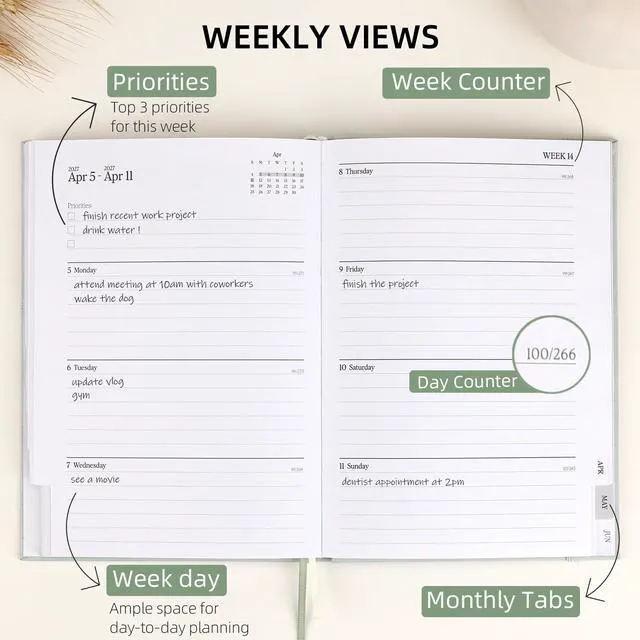 WEEKLY VIEWS
Priorities
Top 3 priorities
for this week
Week Counter
2027 2027
Apr 5 - Apr 11
Apr
S M T W T F S
1 2 3
4 5 6 7 8 9 10
11 12 13 14 15 16 17
18 19 20 21 22 23 24
25 26 27 28 29 30
Priorities
finish recent work project
drink water !
5 Monday
attend meeting at 10am with coworkers
wake the dog
6 Tuesday
update vlog
gym
7 Wednesday
see a movie
WEEK 14
8 Thursday
9 Friday
finish the project
100/266
10 Saturday
Day Counter
11 Sunday
dentist appointment at 2pm
APR
MAY
JUN
Week day
Ample space for
day-to-day planning
Monthly Tabs